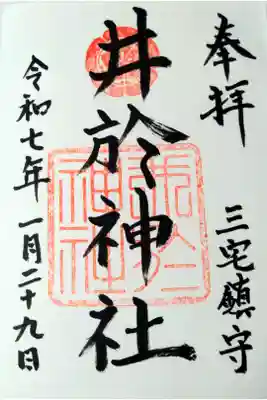 奉拝
三宅鎮守
井於神社
令和七年一月二十九日